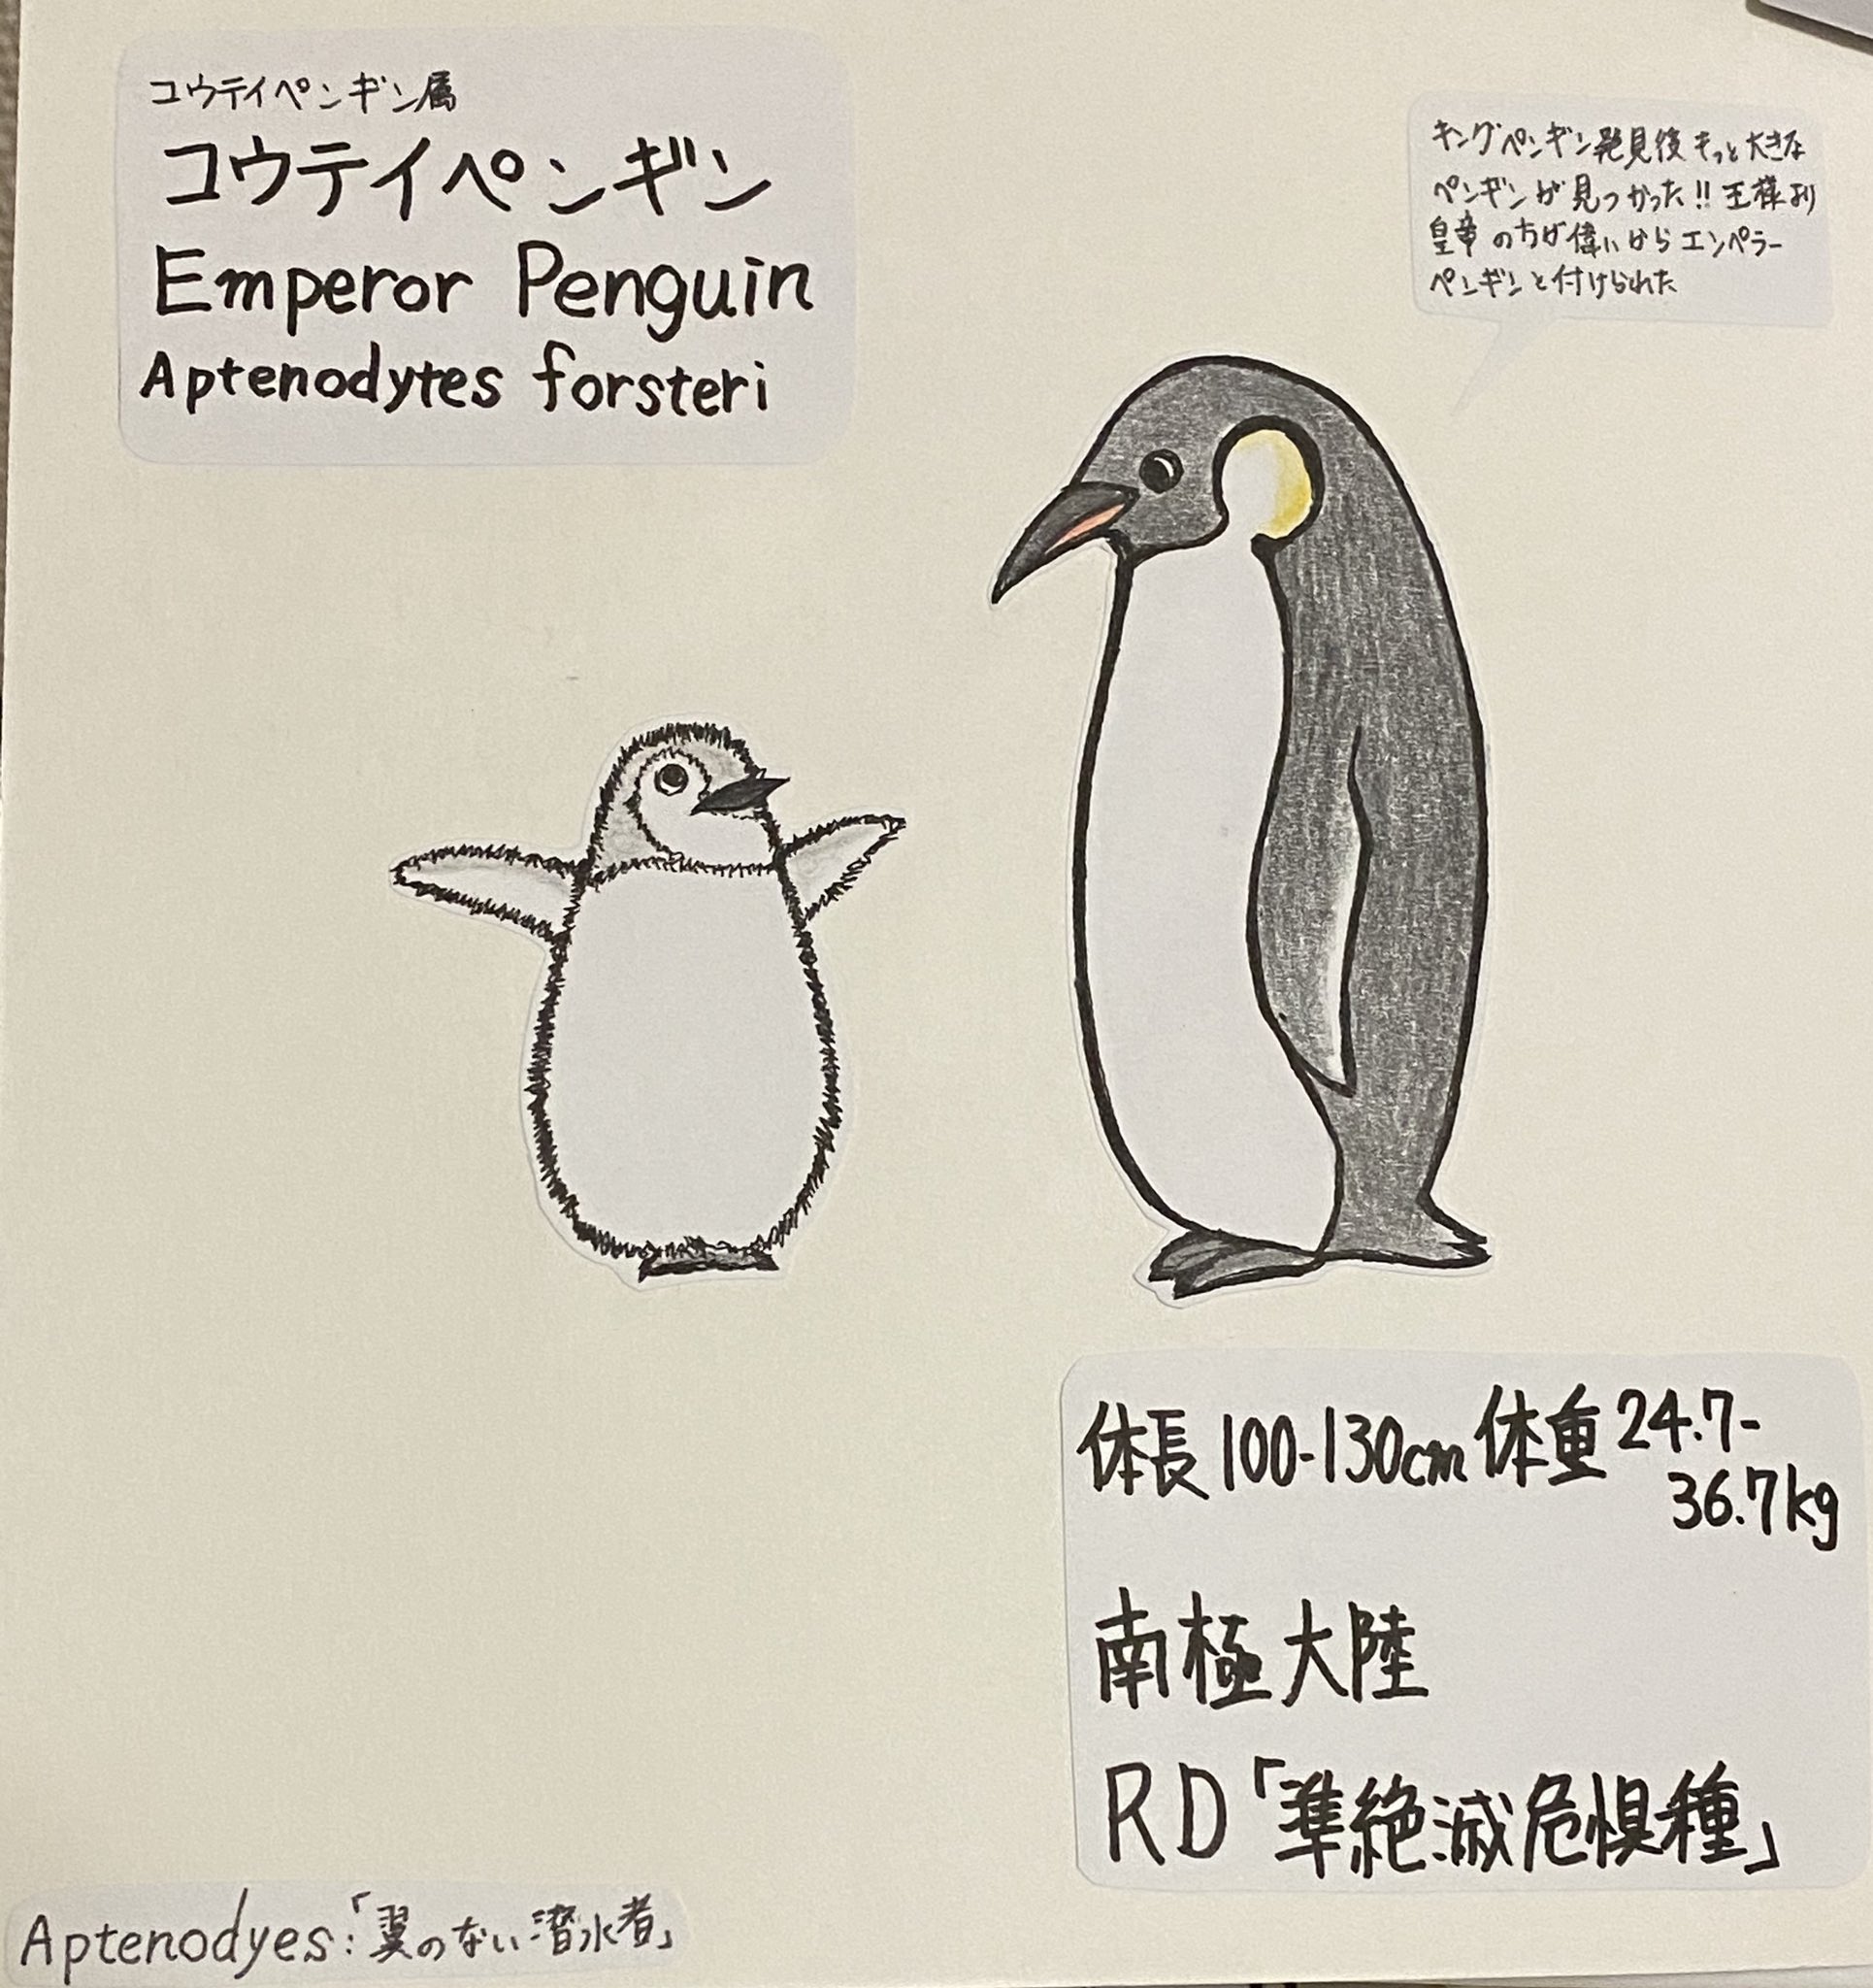 コウテイペンギン属
コウテイペンギン
Emperor Penguin
Aptenodytes forsteri
キングペンギン発見後もっと大きな
ペンギンが見つかった!! 王様より
皇帝の方が偉いからエンペラー
ペンギンと付けられた
体長100-130cm 体重24.7-
36.7kg
南極大陸
RD「準絶滅危惧種」
Aptenodyes:「翼のない潜水者」